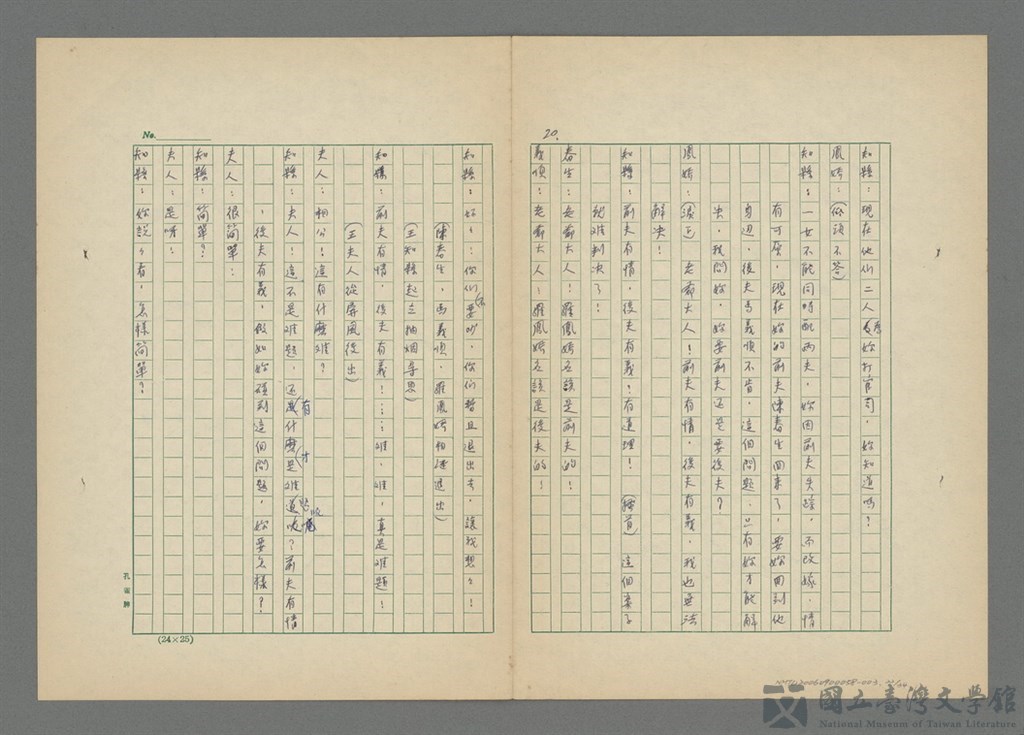 20.
知縣：現在他們二人為妳打官司，妳知道嗎？
鳳嬌：（低頭不答）
知縣：一女不能同時配兩夫，妳因前夫失踪，不改嫁，情
有可原，現在妳的前夫陳春生回來了，要妳回到他
身边，後夫馬義順不肯，這個問題，只有妳才能解
決，我問妳，妳要前夫还是要後夫？
鳳嬌：老爺大人！前夫有情，後夫有義，我也無法
解決！
知縣：前夫有情，後夫有義，有道理！（搔首）這個案子
就难判決了！
春生：老爺大人！羅鳳嬌应該是前夫的！
義順：老爺大人！羅鳳嬌应該是後夫的！
No.
知縣：好好：你們不要吵，你們暫且退出去，讓我想想！
（陳春生，馬義順，羅鳳嬌相繼退出）
（王知縣起立抽烟尋思）
知縣：前夫有情，後夫有義！……难，难，真是难題！
（王夫人從屏風後出）
夫人：相公！這有什麼难？
知縣：夫人！這不是难題，还有什麼才是难題呢？前夫有情
，後夫有義，假如妳碰到這個問題，妳要怎樣？
夫人：很简單：
知縣：简單？
夫人：是呀：
知縣：妳說說看，怎樣简單？
孔雀牌
(24×25)
國立臺灣文學館
National Museum of Taiwan Literature